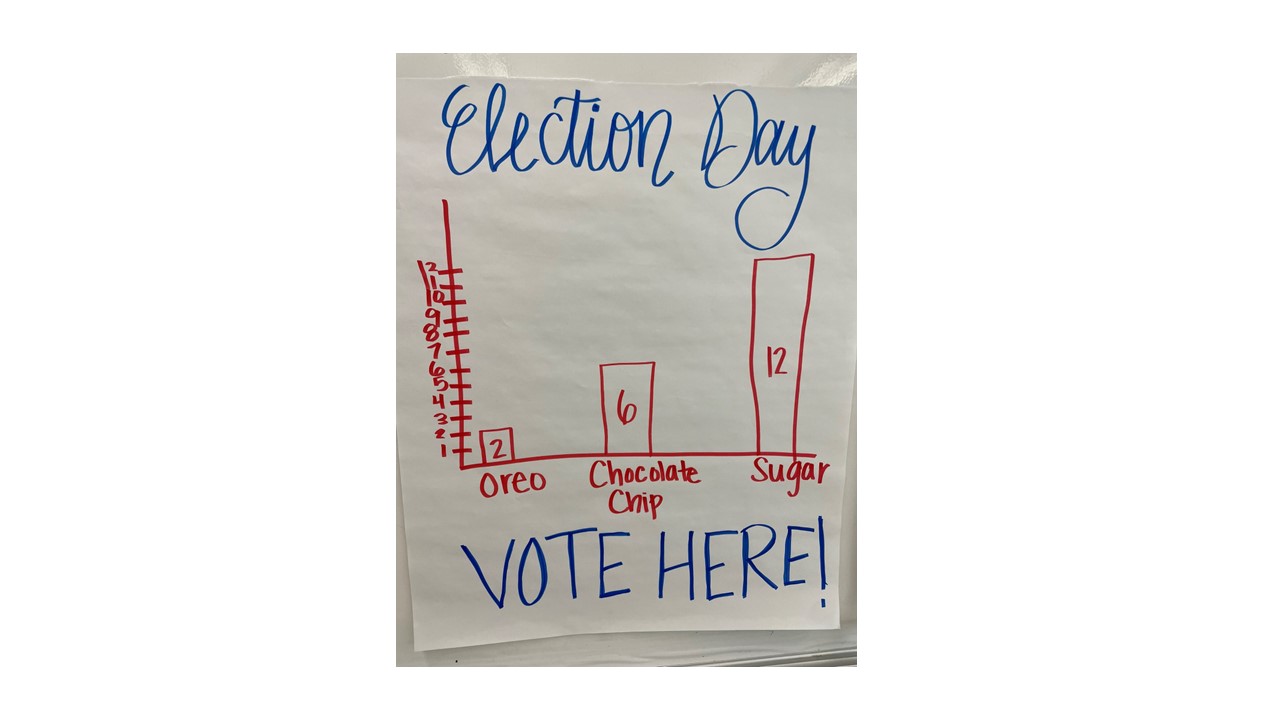 Election Day
12
11
10
9
8
7
6
5
4
3
2
1
2
6
12
Oreo
Chocolate
Chip
Sugar
VOTE HERE!